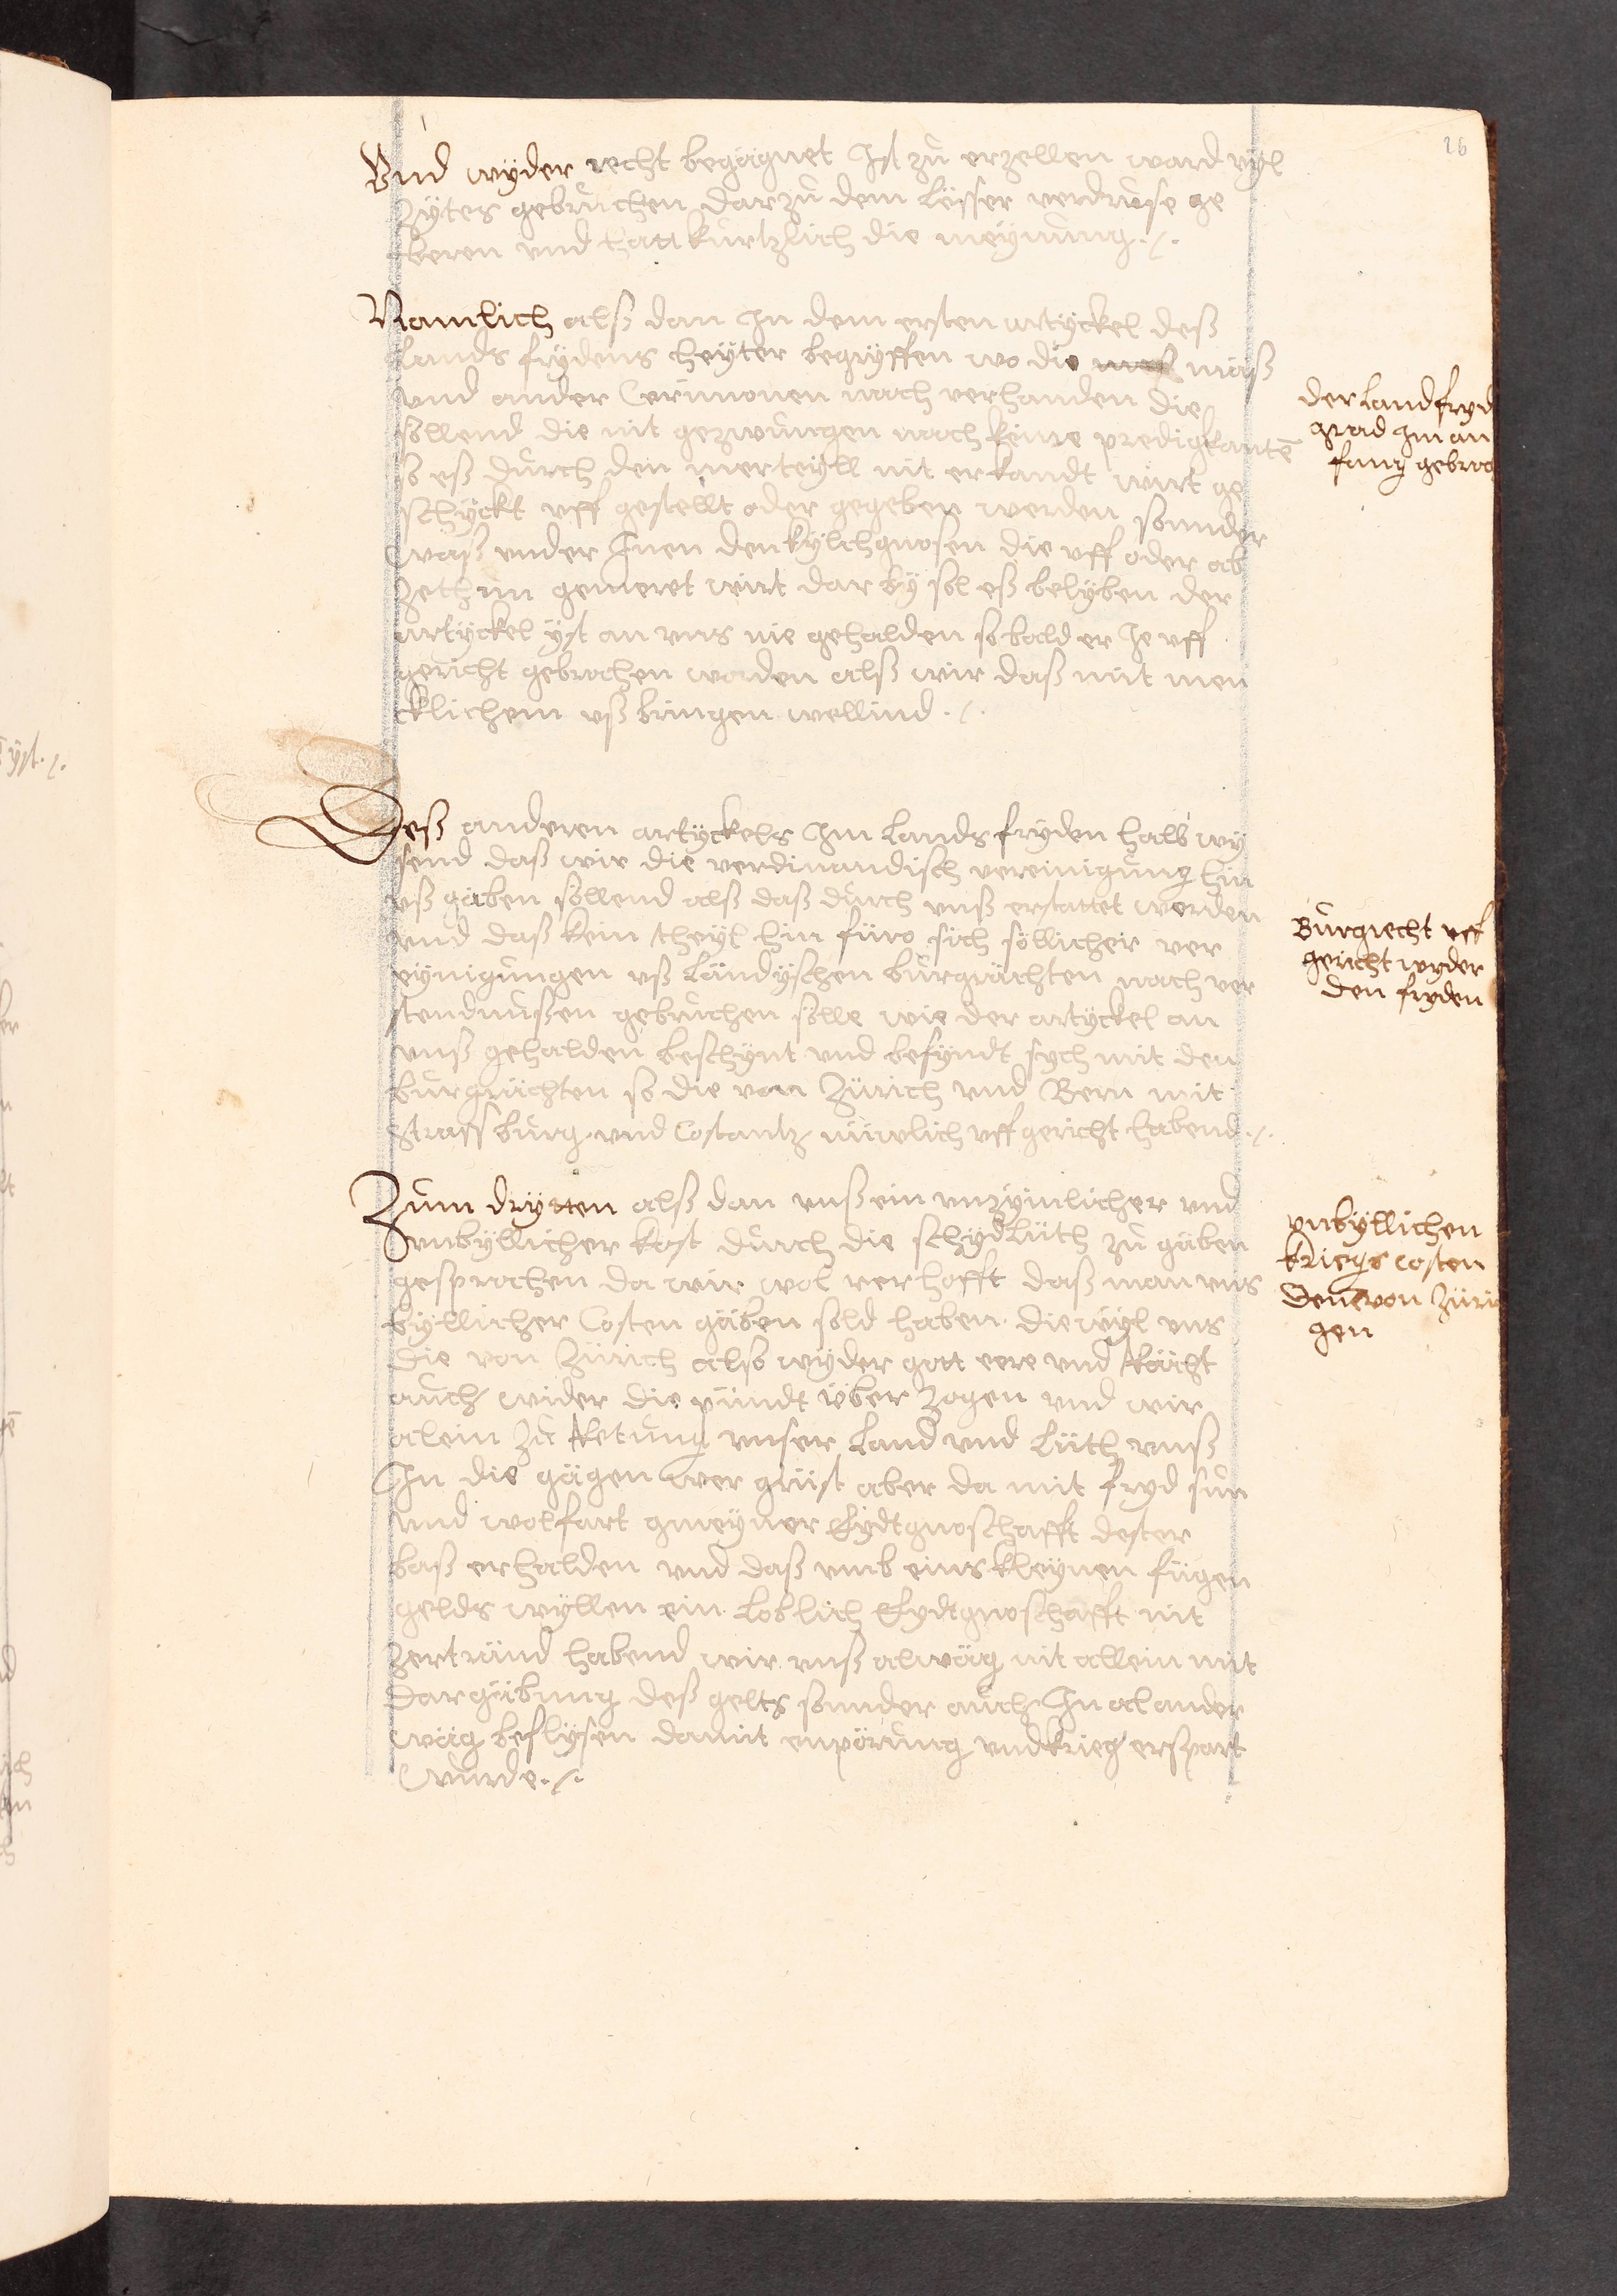 26
Vnd wyder recht begägnet Ist zů erzellen ward vyl
Zytes gebruchen dar zů dem Lësser verdruse ge
beren vnd hatt kurtzlich die meynung ./.
Namlich alß dan In dem ersten artyckel deß
Lands frydens heyter begryffen wo die mäß
vnd ander Cerimonen noch verhanden die
söllend die nit gezwungen noch keine predigkantē
so eß durch den merteyll nit erkandt wirt ge
schyckt vff gestellt oder gegeben werden sonnder
waß vnder Inen den kylchgnosen die vff oder ab
zethun gemeret wirt dar by sol eß belyben der
artyckel yst an vns nie gehalden so bald er Je vff
gericht gebrochen worden alß wir daß mit men
cklichem vß bringen wellind ./.
der Landfryd
grad Im an
fang gebroc
Deß anderen artyckels Im Lands fryden halb wy
send daß wir die verdinandisch vereinigung hin
vß gäben söllend alß daß durch vnß erstattet worden
vnd daß kein theyl hin füro sich söllicher ver
eynigungen vß Ländyschen burgrächten noch ver
stendnußen gebruchen sölle wie der artyckel an
vnß gehalden beschynt vnd befyndt sych mit den
burgrächten so die von Zürich vnd Bern mit
Strassburg vnd Costantz nüwlich vff gericht habend ./.
Burgrecht vff
gericht wyder
den fryden
Zum drytten alß dan vnß ein vnzymlicher vnd
vnbyllicher kost durch die schydlüth zů gäben
gesprochen da wir wol verhofft daß man vns
byllicher Costen gäben sold haben die wyl vns
die von Zürich also wyder gott eere vnd Rächt
auch wider die pündt über zogen vnd wir
alein zů Retung vnser Land vnd Lüth vnß
In die gägen wer grüst aber da mit fryd sun
vnd wolfart gmeyner Eydtgnoschafft dester
baß erhalden vnd daß vmb eins kleynen fügen
gelds wyllen ein Loblich Eydtgnoschafft nit
zertränd habend wir vnß alwäg nit allein mit
dargäbung deß gelts sonnder auch In al ander
wäg beflysen damit enpörung vnd krieg erspart
wurde ./.
vnbyllichen
kriegs costen
denē von Züri
gen